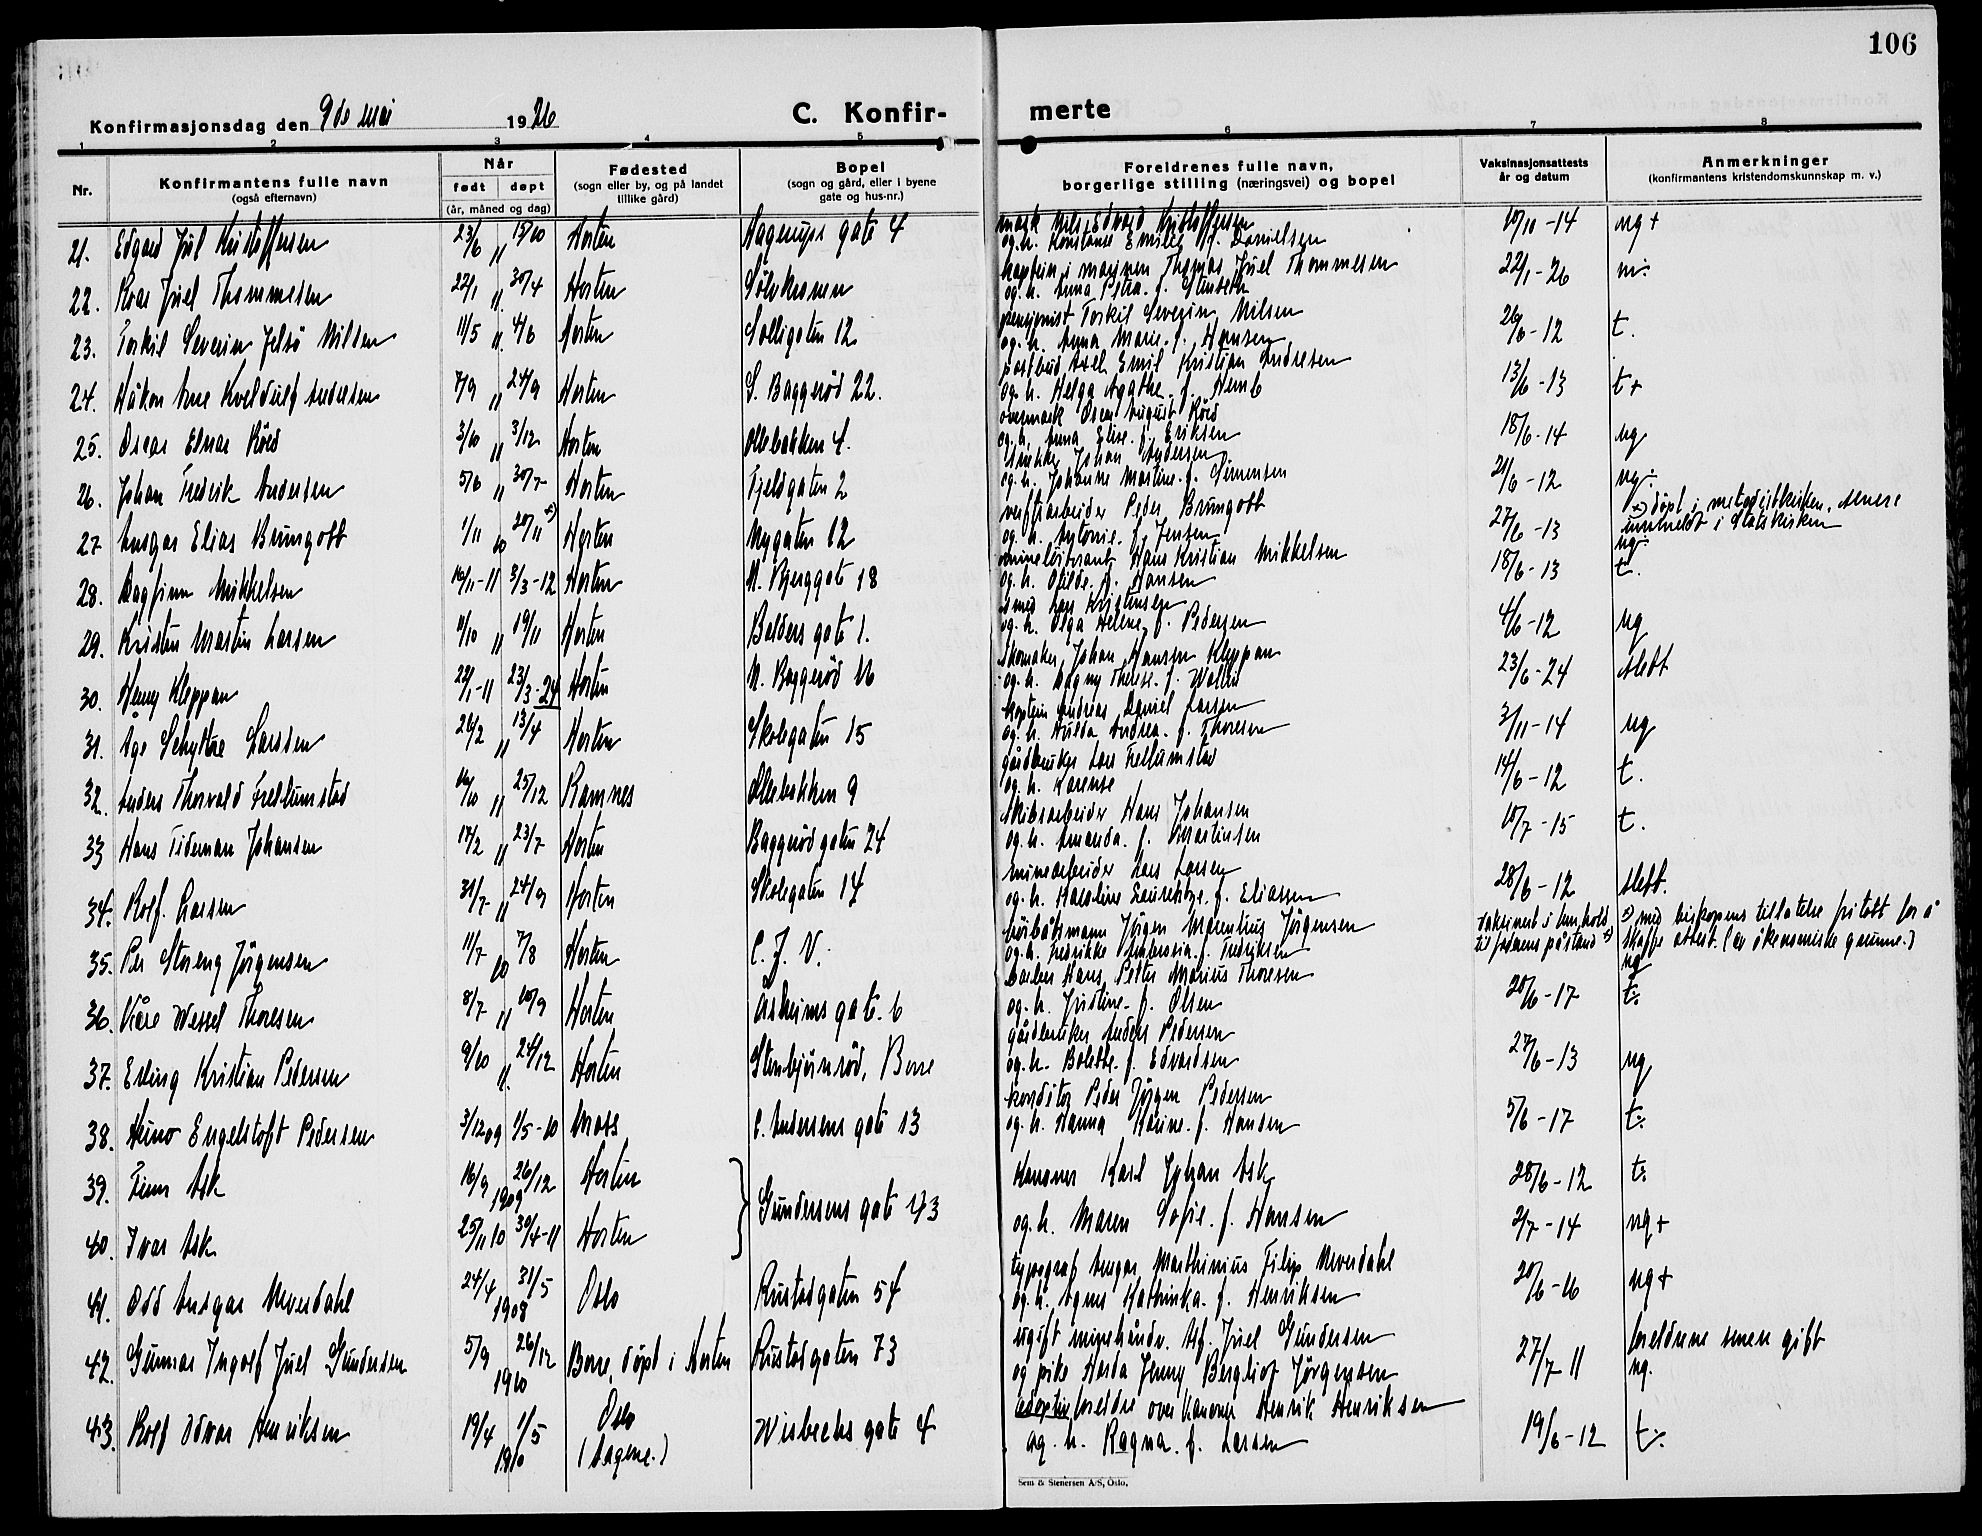 106
Konfirmasjonsdag den 9de mai 1926
C. Konfir-
merte
1 2 3 4 5 6 7 8
Nr.
Konfirmantens fulle navn
(også efternavn)
Når
født døpt
(år, måned og dag)
Fødested
(sogn eller by, og på landet
tillike gård)
Bopel
(sogn og gård, eller i byene
gate og hus-nr.)
Foreldrenes fulle navn,
borgerlige stilling (næringsvei) og bopel
Vaksinasjonsattests
år og datum
Anmerkninger
(konfirmantens kristendomskunnskap m. v.)
21. Edgard Jul Kristoffersen 23/6 11 15/10 Horten Hagerups gate 4 Nils Edvard Kristoffersen 10/11-14 ng +
og h. Konstanse Emilie f. Danielsen
22. Roar Juel Thommesen 22/1 11. 30/4 Horten Sölvkronen kaptein i marinen Thomas Juel Thommesen 22/1-26 m÷
og h. Anna Petra f. Stenseth
23. Torkil Severin Jelsö Nilsen 11/5 11. 4/6 Horten Solligaten 12 pensjonist Torkil Severin Nilsen 26/6-12 t.
og h. Anna Marie f. Hansen
24. Håkon Arne Kveldulf Andersen 7/9 11 24/9 Horten S. Baggerød 22. postbud Axel Emil Kristian Andresen 13/6-13 t+
og h. Helga Agathe f. Hemb
25. Oscar Elnar Röed 3/10 11 3/12 Horten Ollebakken 4. Oscar August Röed 18/6-14 ng
og h. Anna Elise f. Eriksen
26. Johan Fredrik Andersen 5/6 11 30/7 Horten Fjeldgaten 2 Johan Andersen 21/6-12 ng÷
og h. Johanne Martine f. Simensen
27 Ansgar Elias Brungott 1/11 10 20/11 x) Horten Nygaten 12 verftsarbeider Peder Brungott 27/6-13 x) döpt i metodistkirken, senere
og h. Antonie f. Jensen innmeldt i Statskirken
ng÷
28. Dagfinn Mikkelsen 16/11-11 3/3-12 Horten N. Bjerggate 18 mineløitnant Hans Kristian Mikkelsen 18/6-13 t.
og h. Otilde f. Hansen
29. Kristen Martin Larsen 11/10 11 19/11 Horten Balders gate 1. smed Lars Kristensen 4/6-12 ng
og h. Olga Helene f. Pedersen
30. Henry Kleppan 22/1-11 23/3-24 Horten N. Baggerød 16 Skomaker Johan Hansen Kleppan 23/6-24 slett
og h. Dagny Therese f. Wollen
31. Age Schytte Larssen 26/2 11 13/4 Horten Skolegaten 15 kaptein Andreas Daniel Larsen 3/11-14 ng
og h. Hulda Andrea f. Thoresen
32. Anders Thorvald Frellumstad 16/10 11 25/12 Ramnes Ollebakken 9 gårdbruker Lars Frellumstad 14/6-12 t.
og h. Karense
33 Hans Tideman Johansen 17/2 11 23/7 Horten Baggerödgaten 24 Skibsarbeider Hans Johansen 10/7-15 t.
og h. Amanda f. Martinsen
34. Rolf Larsen 31/7 11 24/9 Horten Skolegaten 14 minearbeider Lars Larsen 28/6-12 slett.
og h. Karoline f. Eliassen
35. Per Storeng Jörgensen 11/7 10 7/8 Horten C. J. V. Jörgen Marenius Jörgensen vaksinert i henhold x) med biskopens tillatelse fritatt for å
og h. Fredrikke Ambrosia f. Fredriksen til faderens påstand x) skaffe attest. (av ökonomiske grunne.)
ng
36. Kåre Wessel Thoresen 8/7 11 10/9 Horten Askeims gate 6 Hans Petter Marius Thoresen 20/6-17 t÷
og h. Justine f. Olsen
37. Erling Kristian Pedersen 9/10 11. 24/12 Horten Stenbjörnröd, Borre gårdbruker Anders Pedersen 27/6-13 ng
og h. Bolette f. Edvardsen
38. Heino Engelstoft Pedersen 3/12 09 1/5-10 Moss C. Andersens gate 13 konditor Peder Jörgen Pedersen 5/6-17 t÷
og h. Hanna Karine f. Hansen
39. Finn Ask 16/9 1909 26/12 Horten Gundersens gate 43 Kanoner Karl Johan Ask 28/6-12 t÷
40. Ivar Ask 25/11 10 30/4-11 Horten og h. Maren Sofie f. Hansen 2/7-14 ng +
41. Odd Ansgar Meverdahl 24/4 1908 31/5 Oslo Rustadgaten 54 typograf Ansgar Marthinius Filip Meverdahl 20/6-16 ng +
og h. Agnes Kathinka f. Henriksen
42. Gunnar Ingolf Juel Gundersen 5/9 1910 26/12 Borre, döpt i Horten Rustadgaten 73 ugift minehåndv. Alf Juel Gundersen 27/7-11 foreldrene senere gift
og pike Herda Jenny Bergliot Jörgensen ng.
43. Rolf Oddvar Henriksen 19/4 1910 1/5 Oslo Wisbechs gate 4 adoptivforeldre over Kanoner Henrik Henriksen 19/6-12 t÷
(Hagene.) og h. Ragna f. Larsen
Sem & Stenersen A/S, Oslo.